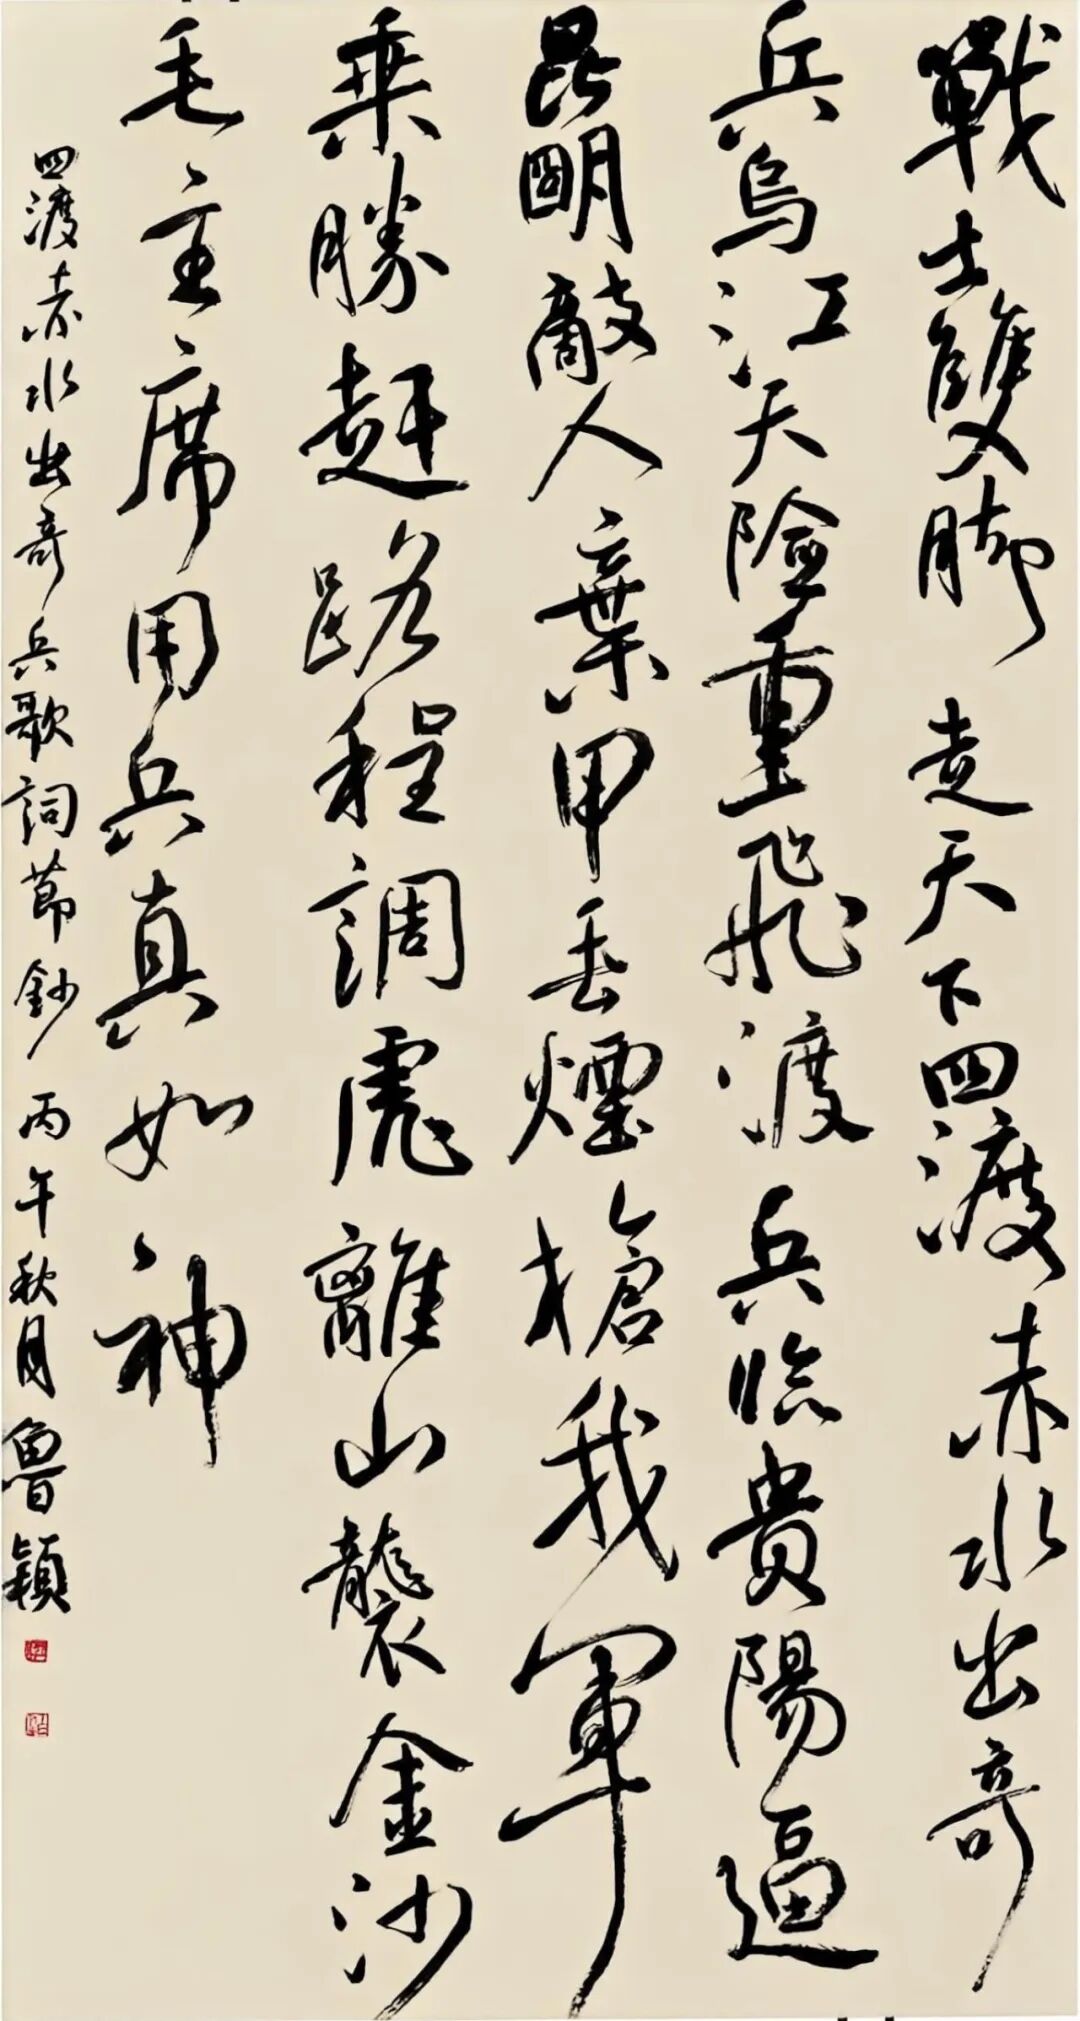 戰士雙脚走天下四渡赤水出奇
兵烏江天險重飛渡兵臨貴陽逼
昆明敵人棄甲丟煙槍我軍
乘勝趕路程調虎離山襲金沙
毛主席用兵真如神
四渡赤水出奇兵歌詞節鈔丙午秋月魯穎